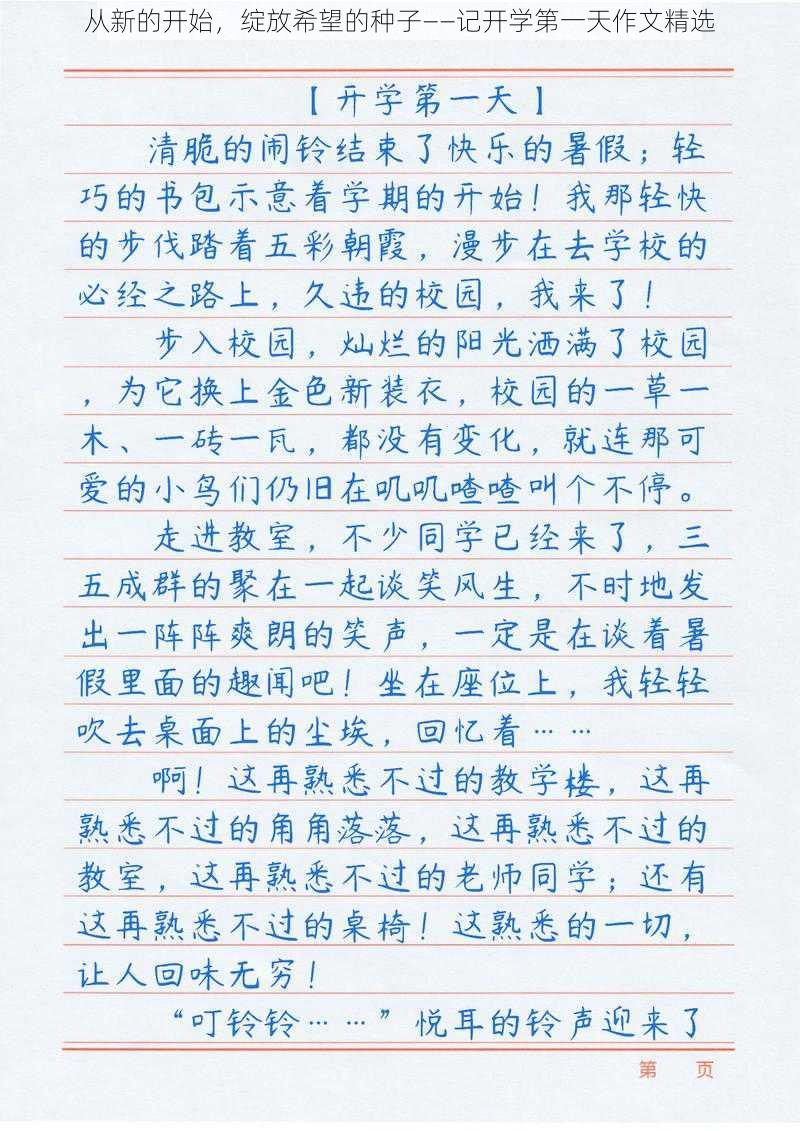 从新的开始，绽放希望的种子——记开学第一天作文精选
【开学第一天】
清脆的闹铃结束了快乐的暑假；轻
巧的书包示意着学期的开始！我那轻快
的步伐踏着五彩朝霞，漫步在去学校的
必经之路上，久违的校园，我来了！
步入校园，灿烂的阳光洒满了校园
，为它换上金色新装衣，校园的一草一
木、一砖一瓦，都没有变化，就连那可
爱的小鸟们仍旧在叽叽喳喳叫个不停。
走进教室，不少同学已经来了，三
五成群的聚在一起谈笑风生，不时地发
出一阵阵爽朗的笑声，一定是在谈着暑
假里面的趣闻吧！坐在座位上，我轻轻
吹去桌面上的尘埃，回忆着……
啊！这再熟悉不过的教学楼，这再
熟悉不过的角角落落，这再熟悉不过的
教室，这再熟悉不过的老师同学；还有
这再熟悉不过的桌椅！这熟悉的一切，
让人回味无穷！
“叮铃铃……”悦耳的铃声迎来了
第 页